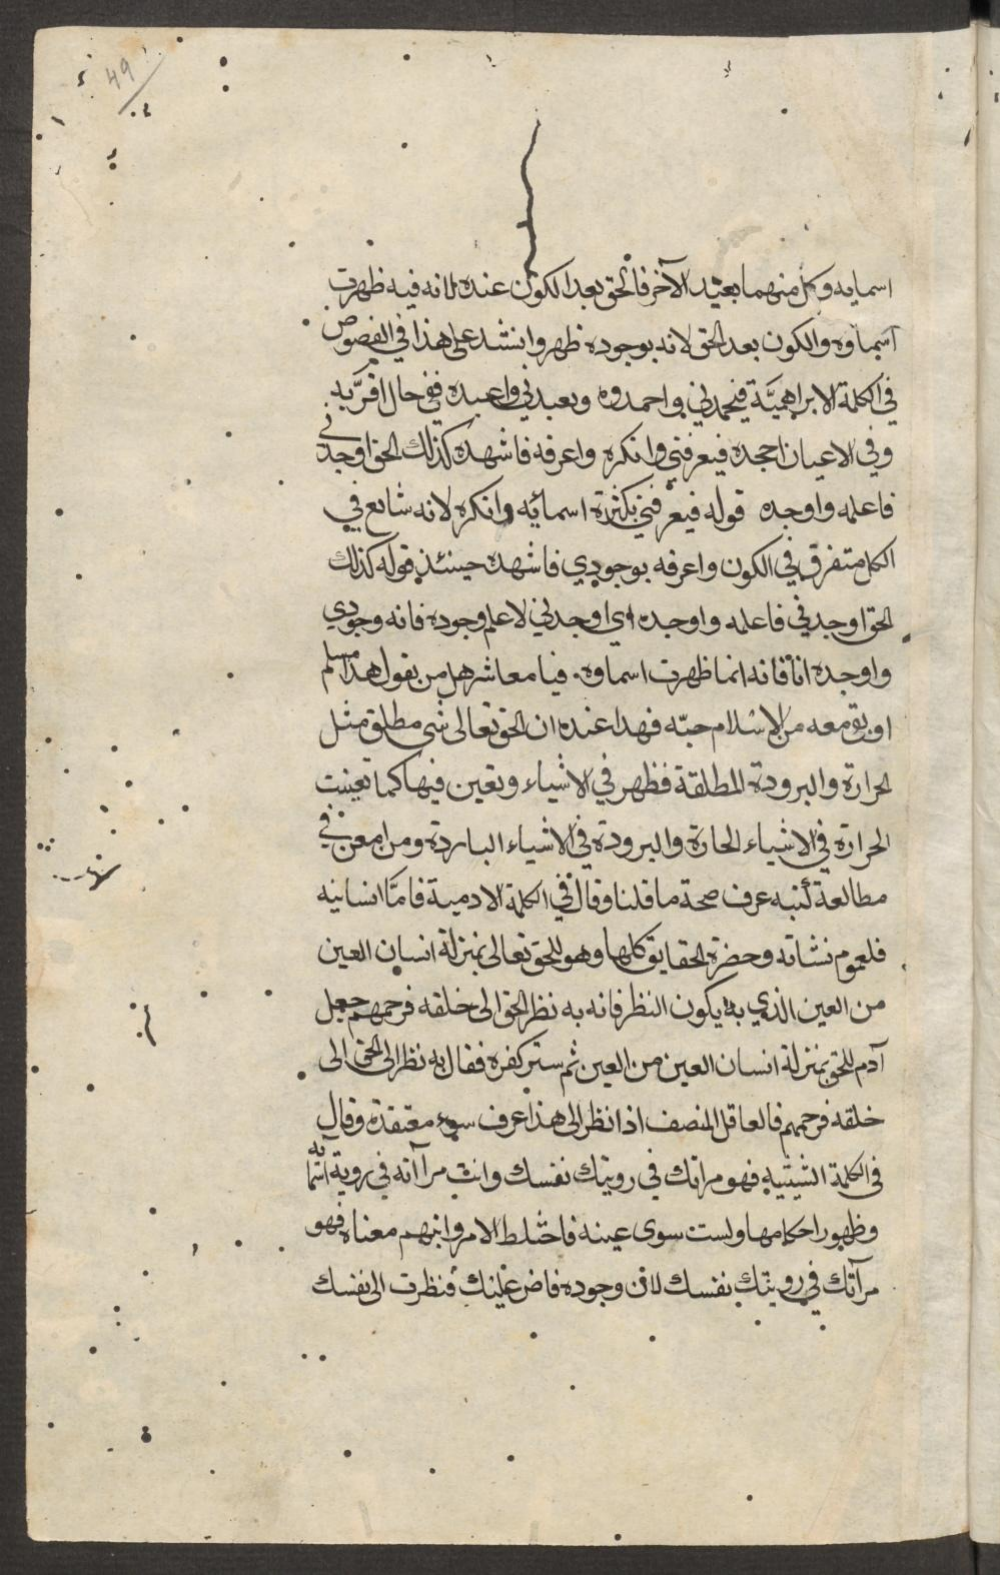 49
اسمايه وكل منهما بعبد الآخر فالحق بعد الكون عنده لانه فيه ظهرت
اسماوه والكون بعد الحق لانه بوجوده ظهر وانشد على هذا في الفصوص
في الكلمة الابراهيمية فيحمدني واحمده ويعبدني واعبده ففي حال اقر به
وفي الاعيان اجحده فيعرفني وانكره واعرفه فاشهده كذلك الحق اوجدني
فاعلمه واوجده قوله فيعرفني بكثرة اسمائه وانكره لانه شائع في
الكل متفرق في الكون واعرفه بوجودي فاشهده حينئذ قوله كذلك
الحق اوجدني فاعلمه واوجده اي اوجدني لاعلم وجوده فانه وجودي
واوجده انا فانه انما ظهرت اسماوه فيا معاشر هل من يقول هذا مسلم
او بقي معه من الاسلام حبه فهذا عنده ان الحق تعالى شي مطلق مثل
الحرارة والبرودة المطلقة فظهر في الاشياء وتعين فيها كما تعينت
الحرارة في الاشياء الحارة والبرودة في الاشياء الباردة ومن امعن في
مطالعة كتبه عرف صحة ما قلنا وقال في الكلمة الادمية فاما انسانيه
فلعموم نشاته وحضرة الحقايق كلها وهو للحق تعالى بمنزلة انسان العين
من العين الذي به يكون النظر فانه به نظر الحق الى خلقه فرحمهم جعل
آدم للحق بمنزلة انسان العين من العين ثم ستر كفره فقال به نظر الى الحق الى
خلقه فرحمهم فالعاقل المنصف اذا نظر الى هذا عرف سوء معتقده وقال
في الكلمة الشيثيه فهو مراتك في رويتك نفسك وانت مرآته في روية اسمايه
وظهور احكامها وليست سوى عينه فاختلط الامر وانبهم معناه فهو
مرآتك في رويتك نفسك لان وجوده فاض عليك فنظرت الى نفسك